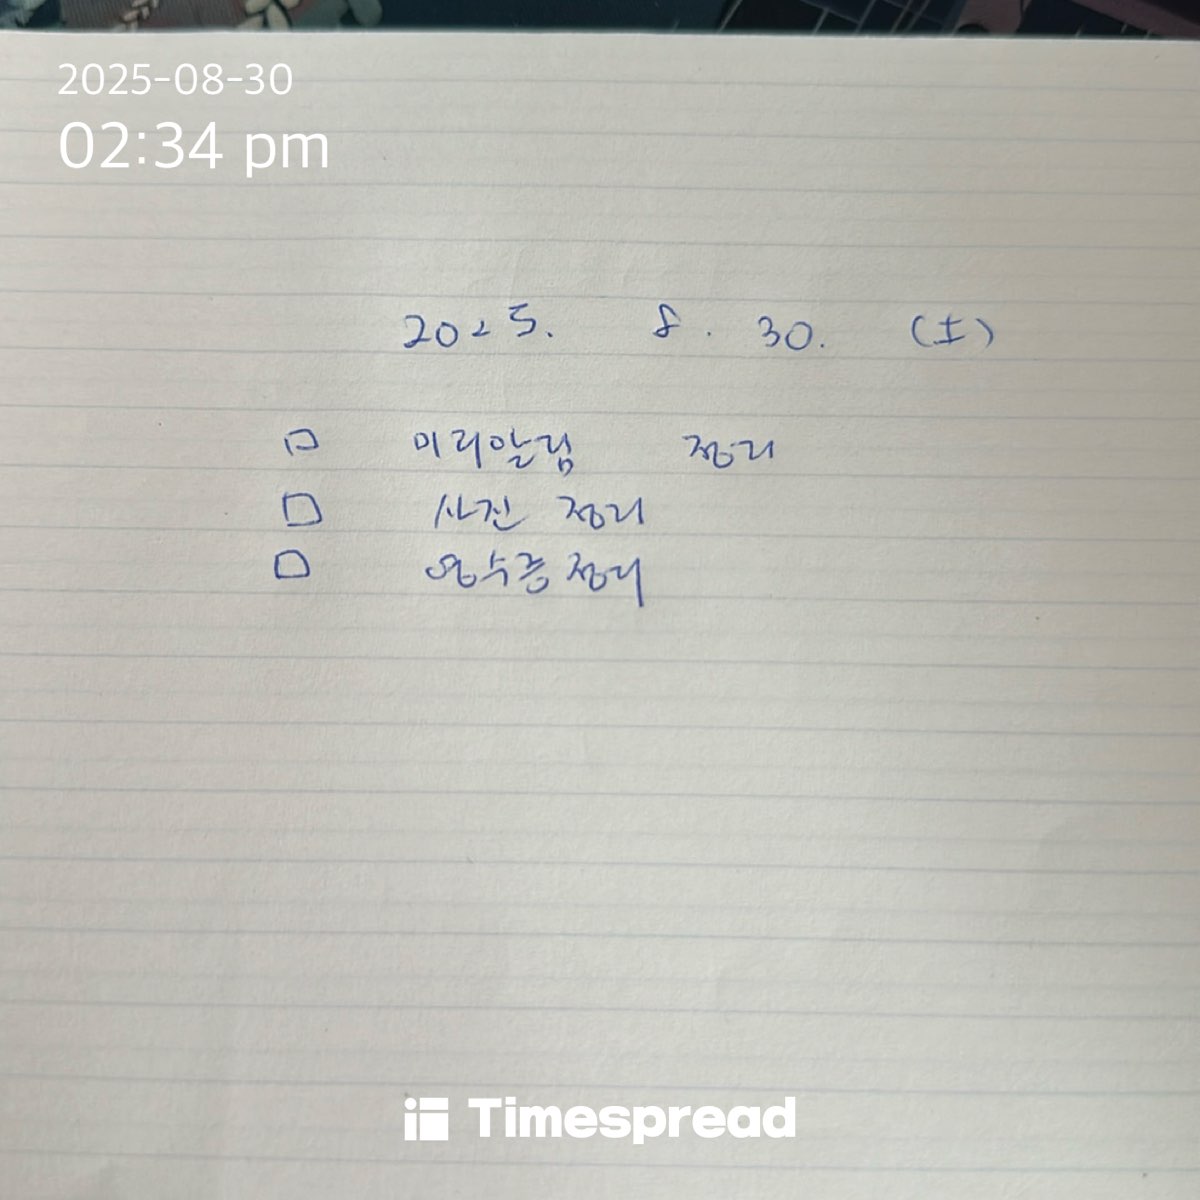 2025-08-30
02:34 pm
2025. 8. 30. (土)
□ 미리알림 정리
□ 사진 정리
□ 영수증 정리
Timespread